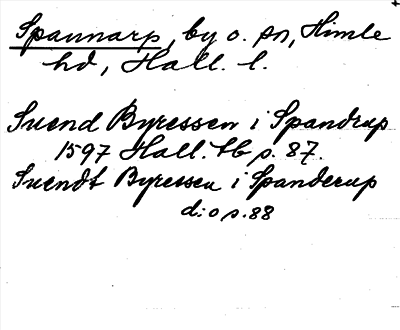 Spannarp, by o. sn, Himle
hd, Hall. l.
Suend Byressen i Spandrup
1597 Hall. tb s. 87.
Suendt Byressen i Spanderup
d:o s. 88